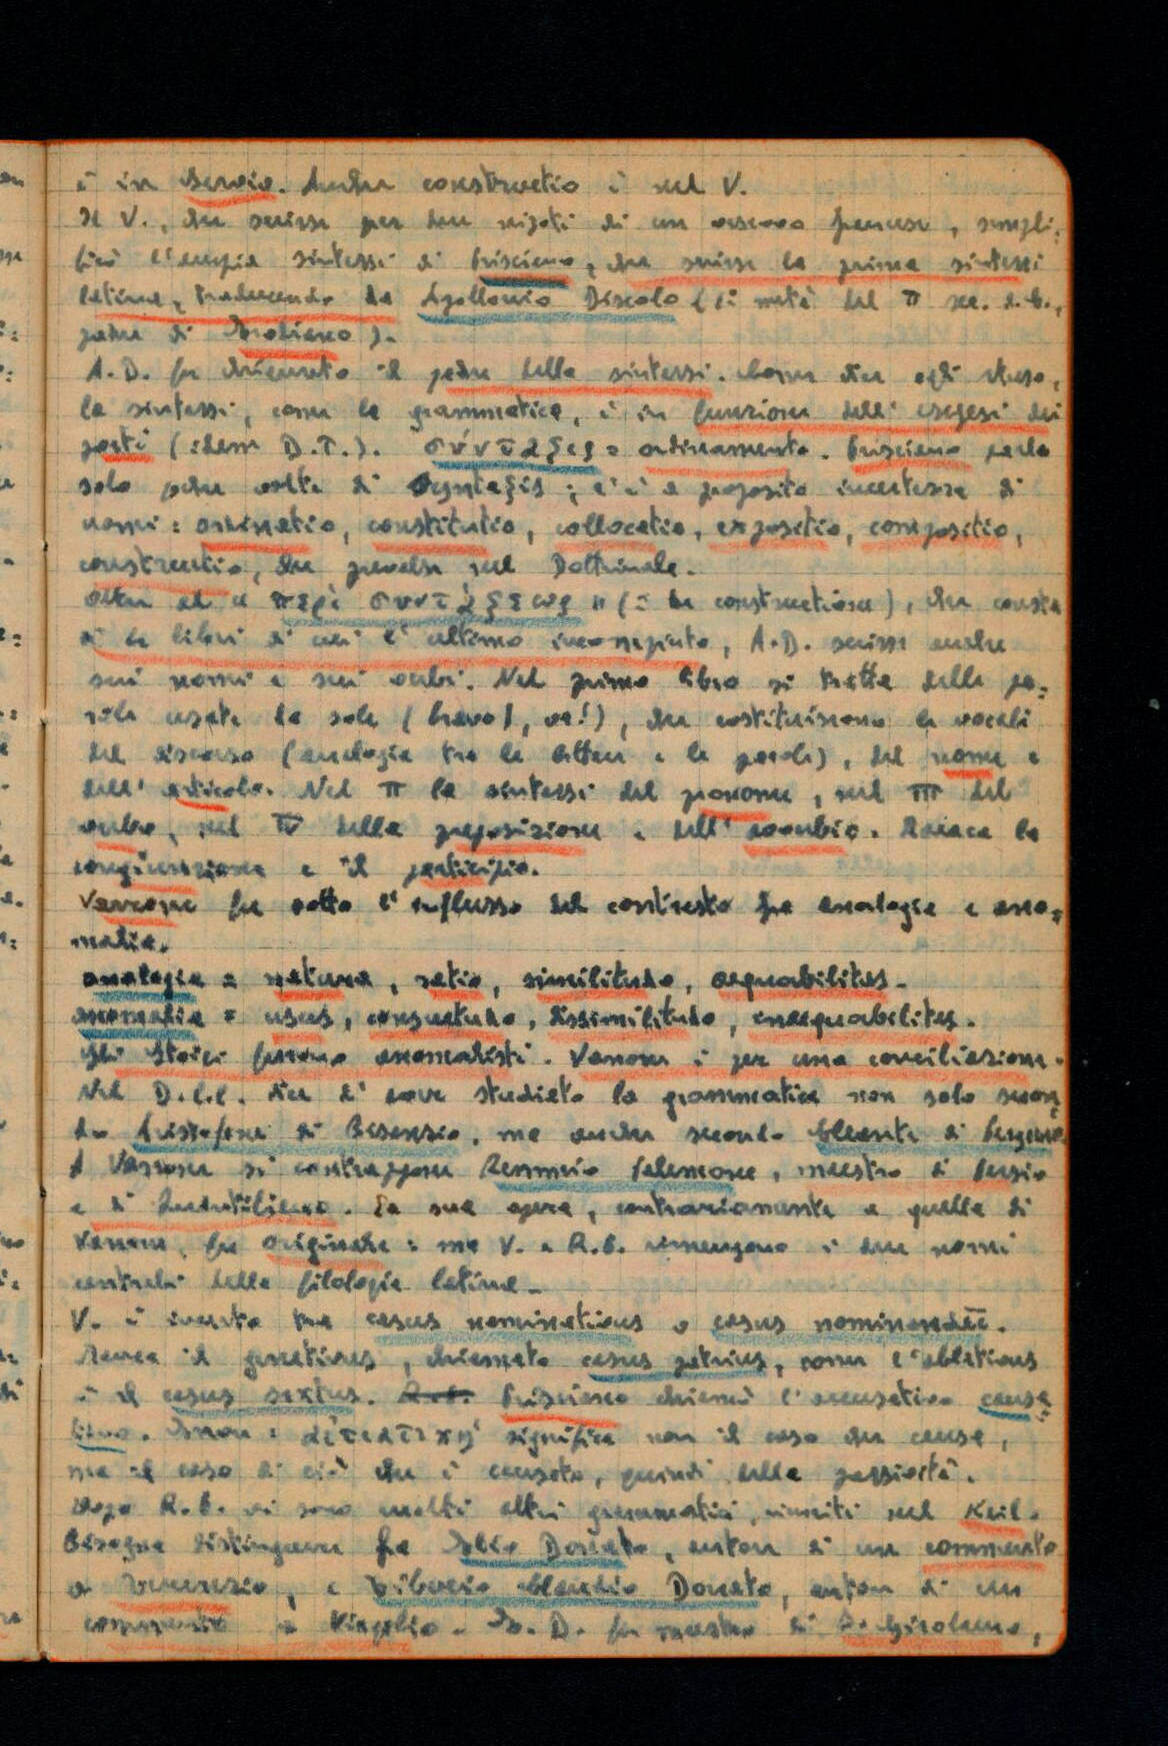 è in Servio. Anche constructio è nel V.
Il V., che scrisse per due nipoti di un vescovo francese, sempli=
ficò l'ampia sintassi di Prisciano, che scrisse la prima sintassi
latina, traducendo da Apollonio Discolo (IIª metà del II sec. d.C.,
padre di Erodiano).
A. D. fu chiamato il padre della sintassi. Come dice egli stesso,
la sintassi, come la grammatica, è in funzione dell'esegesi dei
poeti (idem D.T.). σύνταξις = ordinamento. Prisciano parla
solo poche volte di Syntaxis; c'è a proposito incertezza di
nomi: ordinatio, constitutio, collocatio, expositio, compositio,
constructio, che prevalse nel Dottrinale.
Oltre al "περὶ συντάξεως" (= de constructione), che consta
di 4 libri di cui l'ultimo incompiuto, A.D. scrisse anche
sui nomi e sui verbi. Nel primo libro si tratta delle pa=
role usate da sole (bravo!, ve!), che costituiscono le vocali
del discorso (analogia tra le lettere e le parole), del nome e
dell'articolo. Nel II la sintassi del pronome, nel III del
verbo, nel IV della preposizione e dell'avverbio. Manca la
congiunzione e il participio.
Varrone fu sotto l'influsso del contrasto fra analogia e ano=
malia.
analogia = natura, ratio, similitudo, aequabilitas.
anomalia = usus, consuetudo, dissimilitudo, inaequabilitas.
Gli Stoici furono anomalisti. Varrone è per una conciliazione.
Nel D.l.l. dice d'aver studiato la grammatica non solo secon=
do Aristofane di Bisanzio, ma anche secondo Cleante di Pergamo
A Varrone si contrappone Remmio Palemone, maestro di Persio
e di Quintiliano. La sua opera, contrariamente a quella di
Varrone, fu originale: ma V. e R.P. rimangono i due nomi
centrali della filologia latina.
V. è incerto tra casus nominativus o casus nominandi.
Manca il genetivus, chiamato casus patrius, come l'ablativus
è il casus sextus. R.P. Prisciano chiamò l'accusativo causa=
tivo. αἰτιατική significa non il caso che causa,
ma il caso di ciò che è causato, quindi della passività.
Dopo R.P. vi sono molti altri grammatici, riuniti nel Keil.
Bisogna distinguere fra Elio Donato, autore di un commento
a Terenzio, e Tiberio Claudio Donato, autore di un
commento a Virgilio. E. D. fu maestro di S. Girolamo,